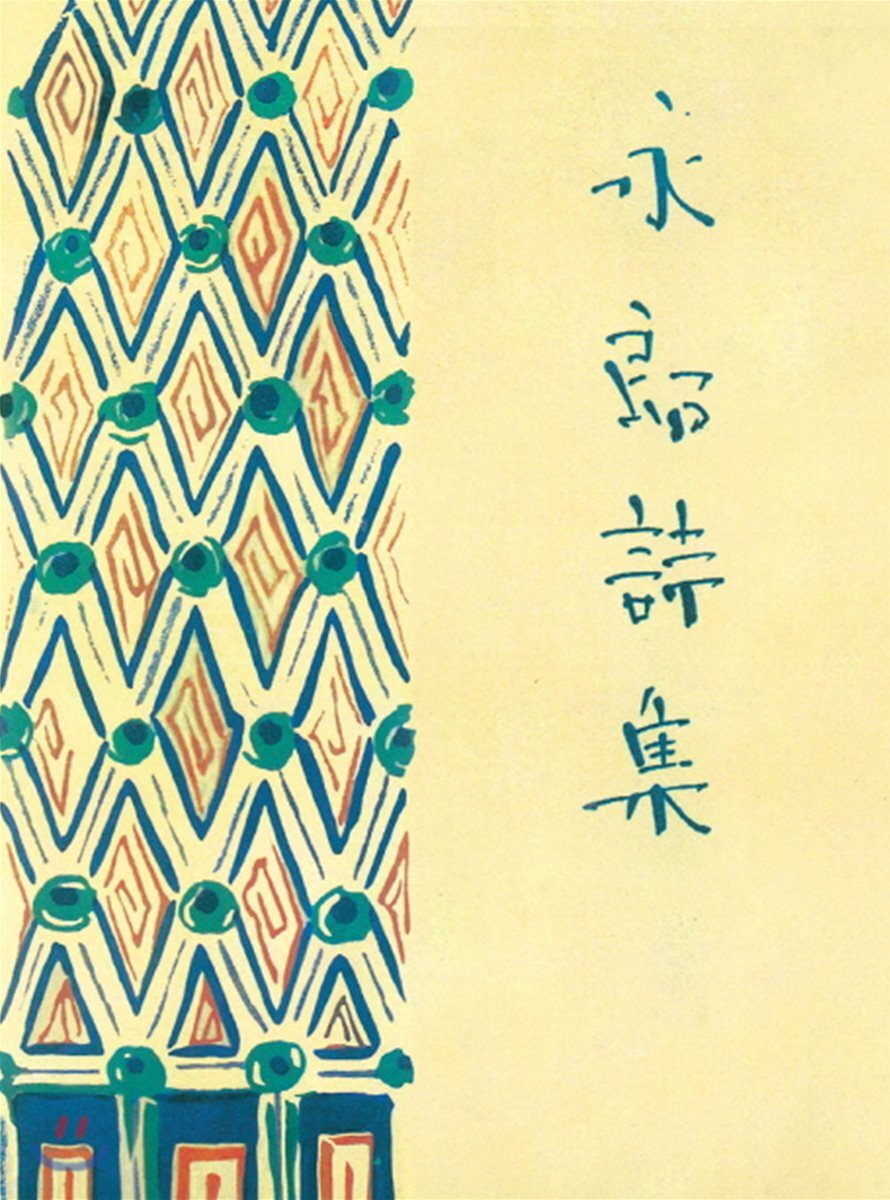 永郞詩集